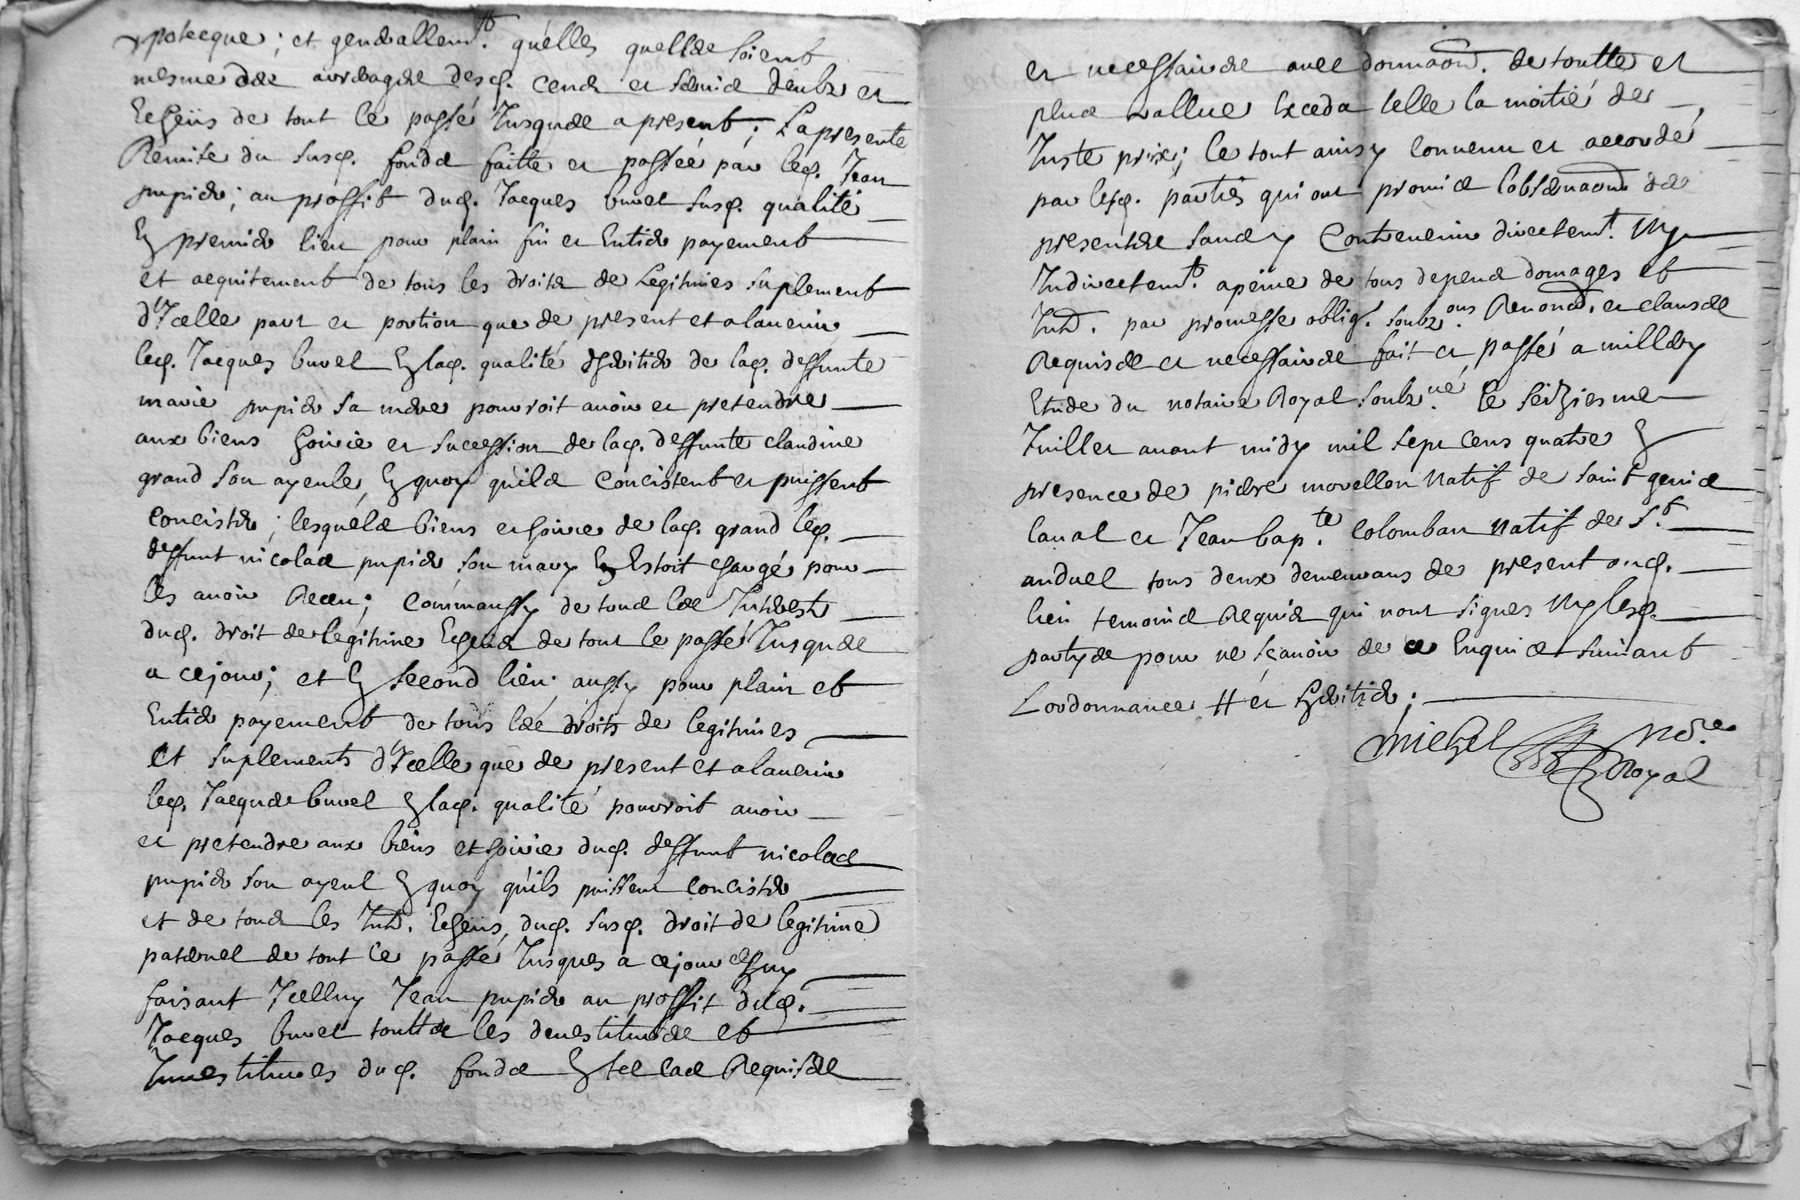 ypotecque; et generallemt. quelles quelles soient
mesme des arrerages desd. cens et servis deubs et
Echeus de tout le passé Jusques a present; La presente
Remise du susd. fonds faitte et passée par led. Jean
pupier; au proffit dud. Jacques buvet susd. qualité
En premier lieu pour plain fin et Entier payement
et acquitement de tous les droits de Legitimes suplement
d'Icelle part et portion que de present et a lauenir
led. Jacques buvet En lad. qualité d'heritier de lad. deffunte
marie pupier sa mere pourroit auoir et pretendre
aux biens hoirie et sucession de lad. deffunte claudine
grand son ayeule, En quoy quils concistent et puissent
concister; lesquels biens et hoirie de lad. grand led.
deffunt nicolas pupier son mary En Estoit chargé pour
les auoir Receu; comm aussy de tous les Interests
dud. droit de legitime Echeus de tout le passé Jusques
a ce jour; et En second lieu aussy pour plain et
Entier payement de tous les droits de legitimes
et suplements d'Icelle que de present et a lauenir
led. Jacques buvet En lad. qualité pourroit auoir
et pretendre aux biens et hoirie dud. deffunt nicolas
pupier son ayeul En quoy quils puissent concister
et de tous les Inter. Echeus, dud. susd. droit de legitime
paternel de tout le passé Jusques a ce jour d'huy
faisant Icelluy Jean pupier au proffit dud.
Jacques buvet touttes les deuestitures et
Inuestitures dud. fonds En tel cas Requises
et necessaires auec donnaon. de toutte et
plus vallue Exceda telle la moitié de
Juste prix; le tout ainsy conuenu et accordé
par lesd. parties qui ont promis lobseruaon des
presentes sans y Contreuenir directemt. Ny
Indirectemt. a peine de tous depens domages et
Inter. par promesse oblig. soubz.ons Renonc. et clauses
Requises et necessaires fait et passé a millery
Etude du notaire Royal soubz.né le seiziesme
Juillet auant midy mil sept cens quatre En
presence de pierre morellon Natif de saint genis
laual et Jean bap.te colomban natif de St.
anduel tous deux demeurans de present aud.
lieu temoins Requis qui nont signes Ny lesd.
partyes pour ne scauoir de ce Enquis et suiuant
Lordonnance et heritier;
michel No.re
Royal